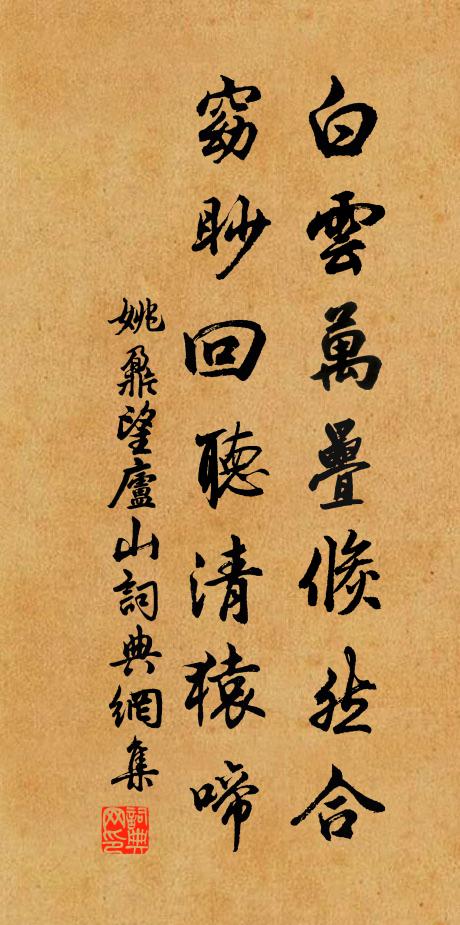 白雲萬疊倏然合
窈眇回聽清猿啼
姚鼐望廬山詞典網集
詞典网印